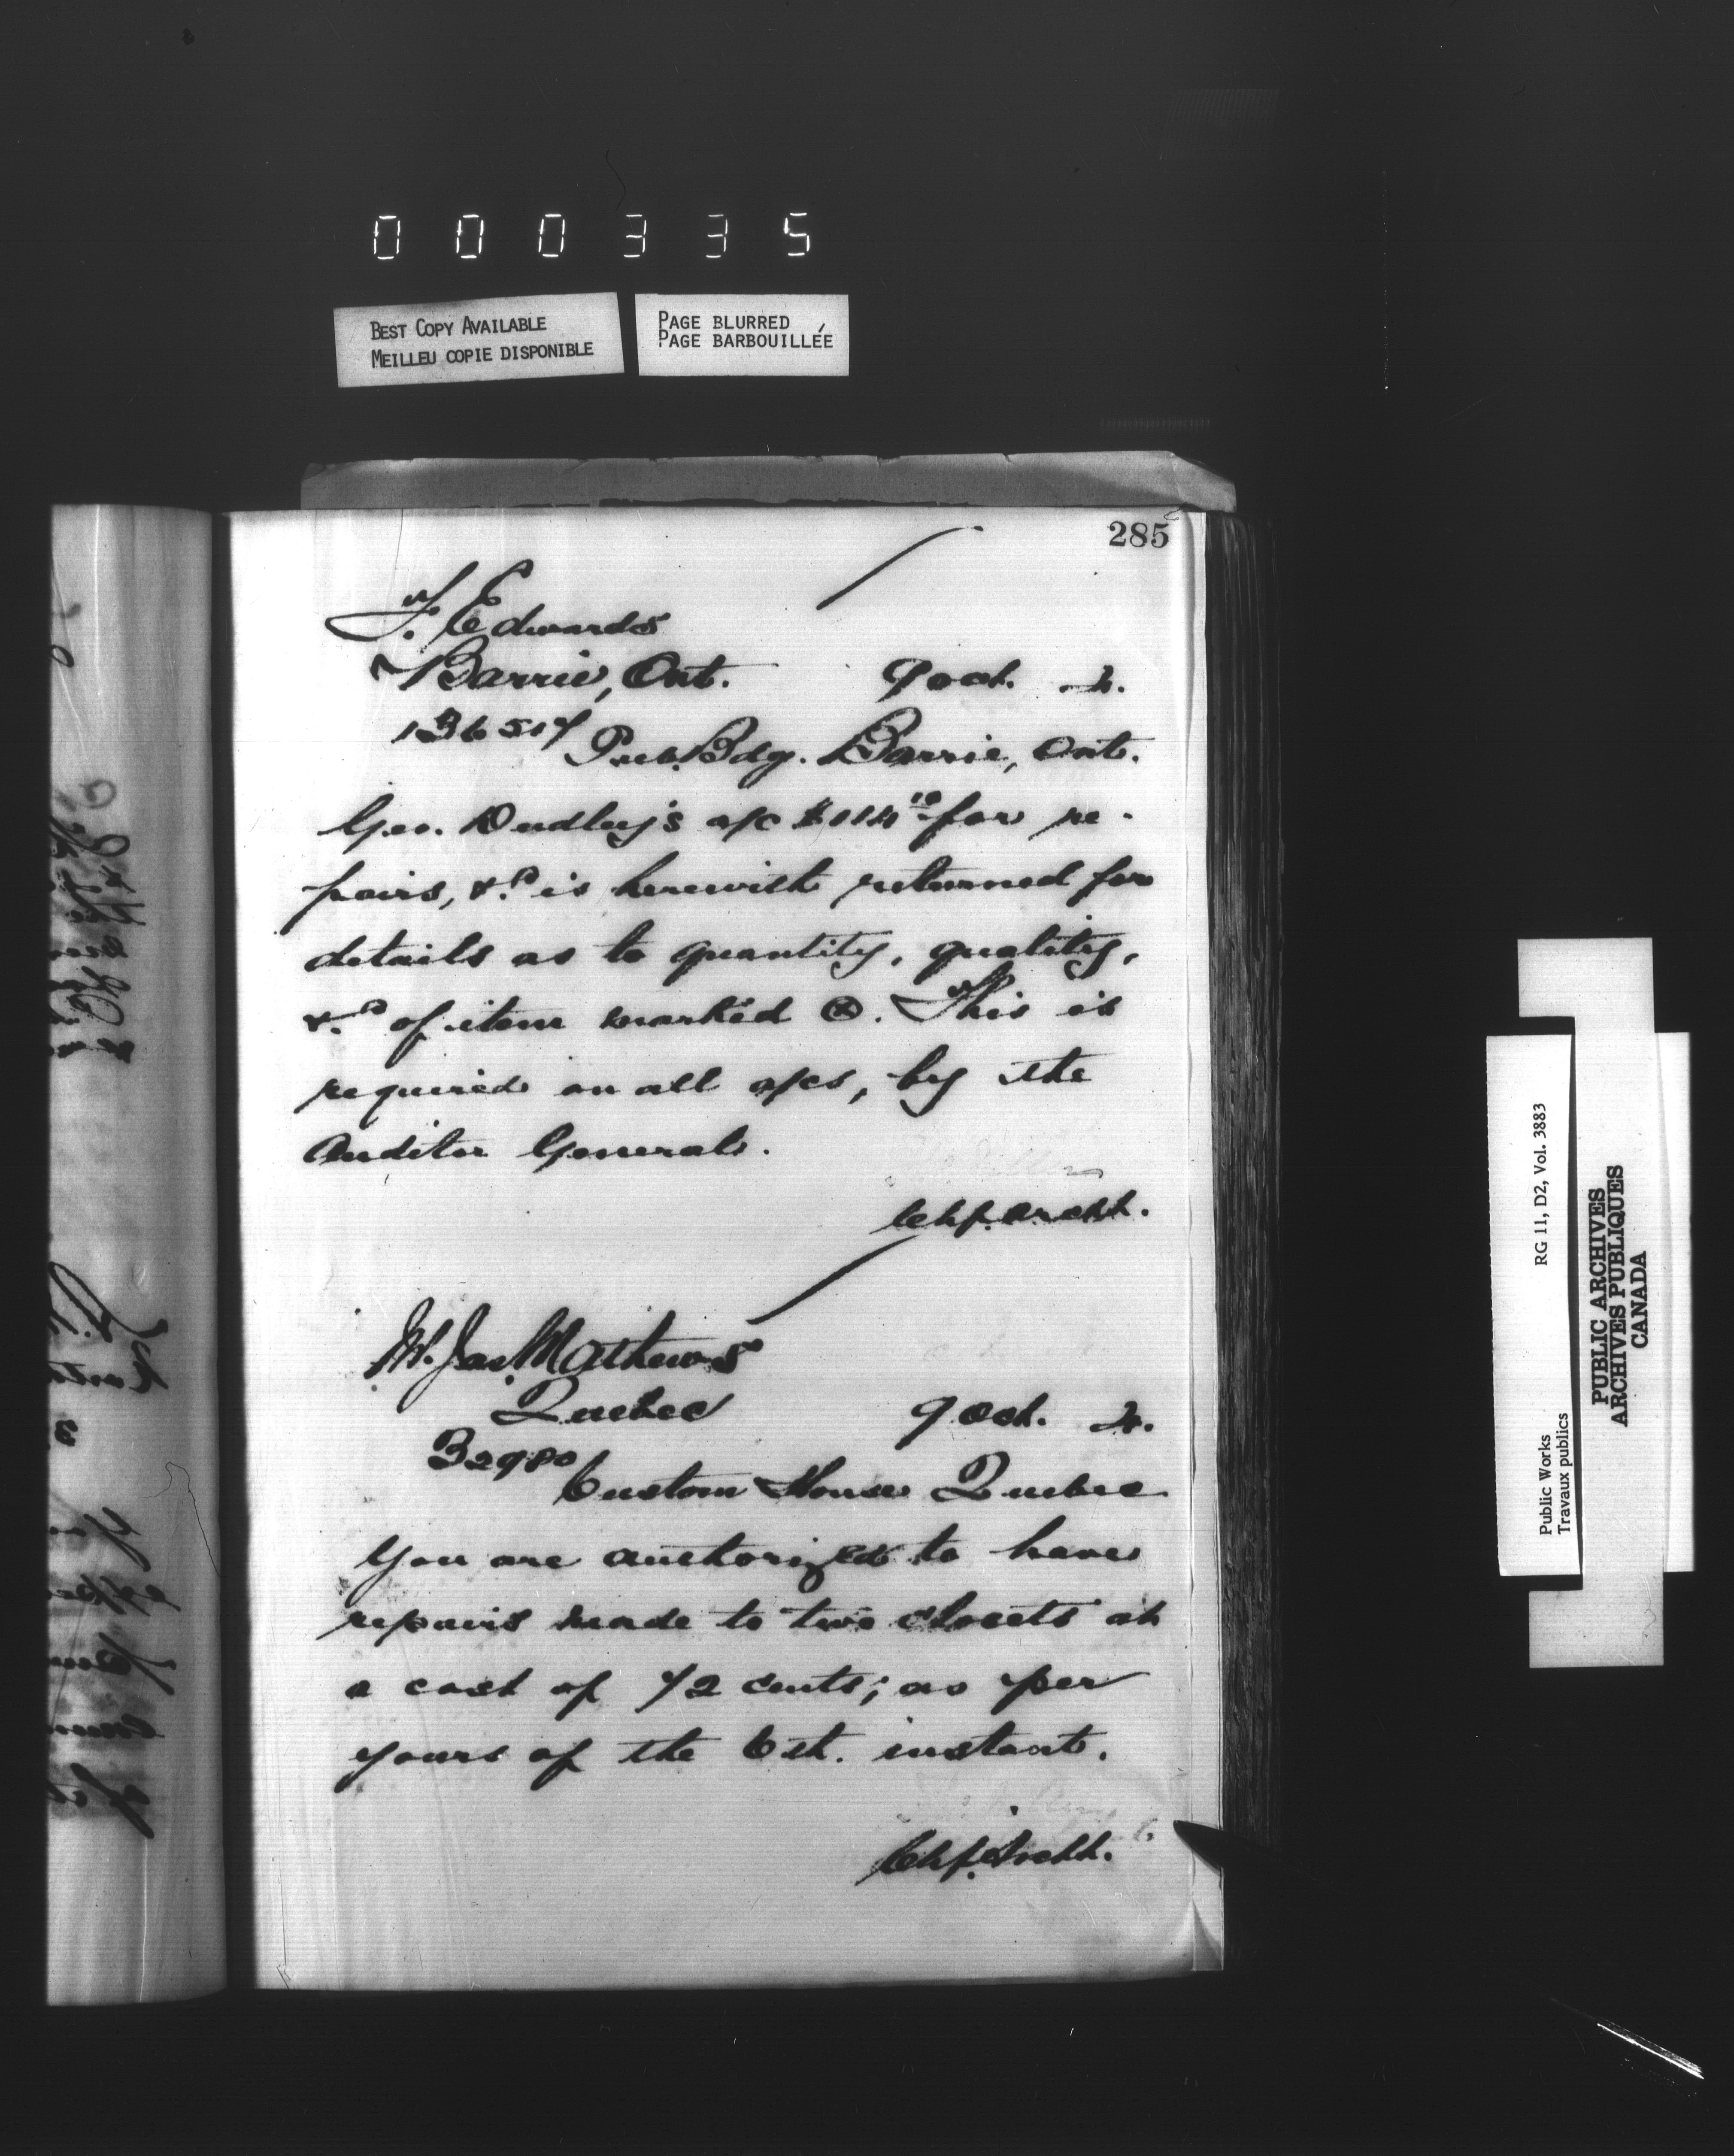 000335
BEST COPY AVAILABLE
MEILLEU COPIE DISPONIBLE
PAGE BLURRED
PAGE BARBOUILLÉE
285
F. Edwards
Barrie, Ont. 9 Oct. 4.
136517
Pub. Bdg. Barrie, Ont.
Geo. Dudley's a/c $114.10 for re-
pairs, &c is herewith returned for
details as to quantity, quality,
&c of item marked ⓧ. This is
required on all a/cs, by the
Auditor General.
Chf. Archt.
Jas. Mathews
Quebec 9 Oct. 4.
32980
Custom House Quebec
You are authorized to have
repairs made to two closets at
a cost of 72 cents; as per
yours of the 6th. instant.
Chf. Archt.
Public Works
Travaux publics
RG 11, D2, Vol. 3883
PUBLIC ARCHIVES
ARCHIVES PUBLIQUES
CANADA